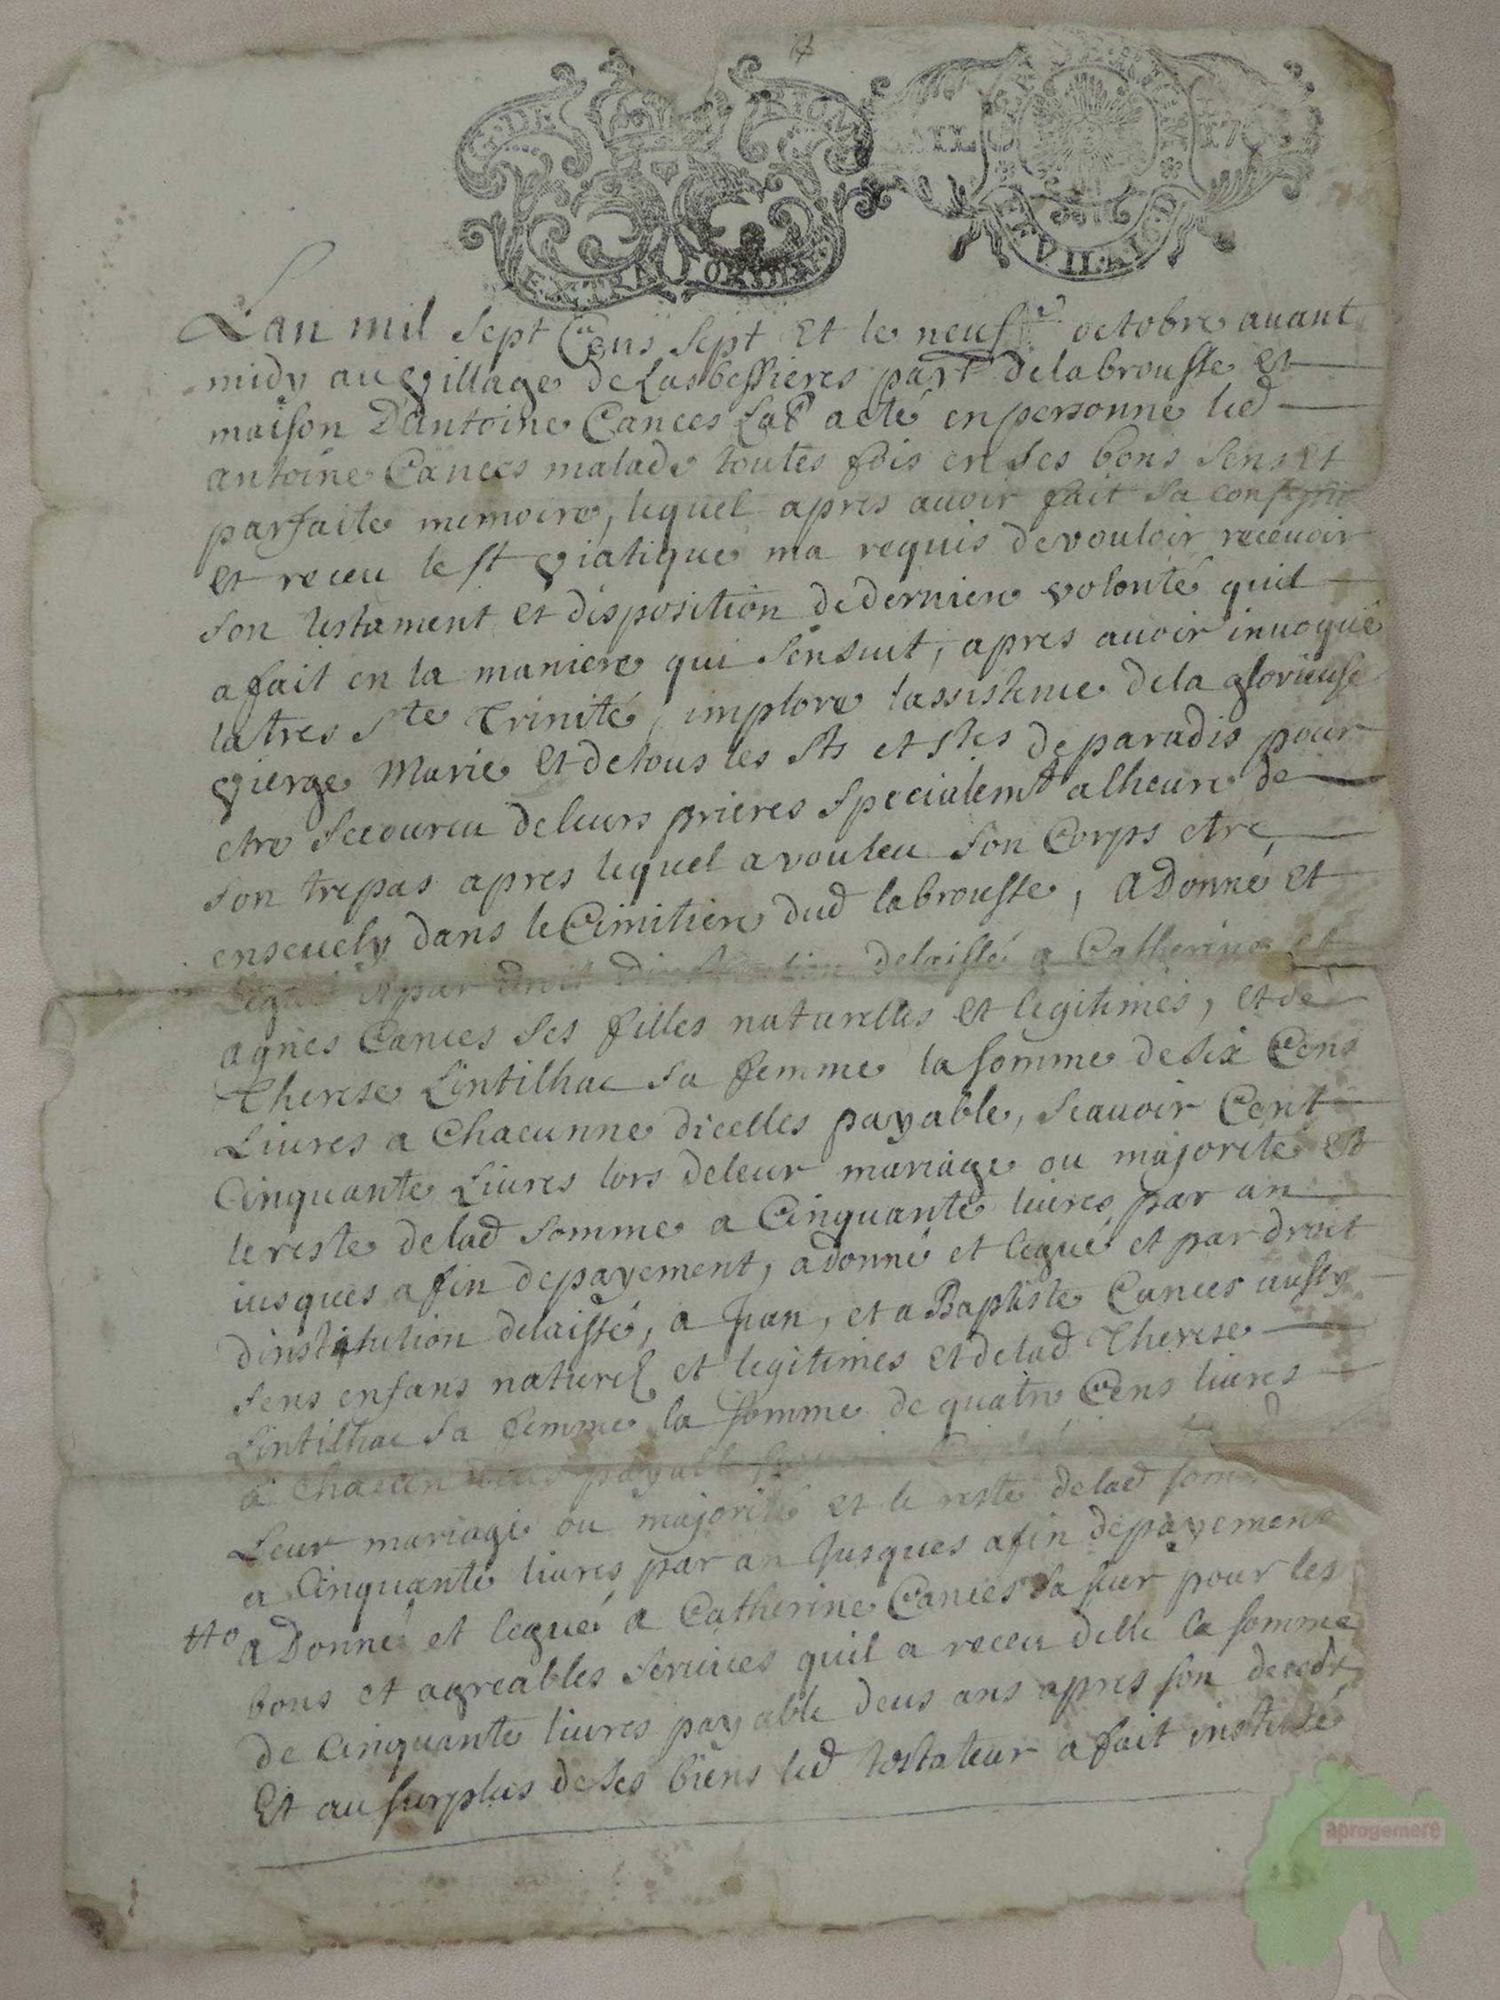 G. DE
EXTRAORDIN
Lan mil sept Cens sept Et le neufe octobre auant
midy au village de Lasbessieres parse delabrousse et
maison Dantoine Cances Lab acté en personne led
antoine Cances malade toutes fois en ses bons sens et
parfaite memoire, lequel apres auoir fait sa confession
et receu le st viatique ma requis devouloir receuoir
son testament et disposition dederniere volonté quil
a fait en la maniere qui sensuit, apres auoir inuoqué
latres ste Trinité, implore lassistence dela glorieuse
vierge Marie Et detous les sts et stes de paradis pour
etre secoureu deleurs prieres specialemt alheure de
son trepas apres lequel a vouleu son Corps etre
enseuely dans le Cimitiere dud labrousse, a Donné et
Legué et par droit Dinstitution delaissé a Catherine et
agnes Cances ses filles naturelles et legitimes, et de
Therese Lintilhac sa femme la somme de six Cens
Liures a Chacunne dicelles payable, scauoir Cent
Cinquante Liures lors deleur mariage ou majorité et
lereste delad somme a Cinquante liures par an
iusques a fin depayement, adonné et legué et par droit
dinstitution delaissé, a Jean, et a Baptiste Cances aussy
sens enfans naturel et legitimes et delad Therese
Lintilhac sa femme la somme de quatre Cens liures
a Chacun payable
Leur mariage ou majorité et le reste delad som
a Cinquante liures par an Jusques afin depayemens
tto a Donné et legué a Catherine Cances sa sur pour les
bons et agreables seruices quil a receu delle la somme
de Cinquante liures payable deus ans apres son decedz
Et au surplus de ses biens led testateur a fait institué
aprogemere